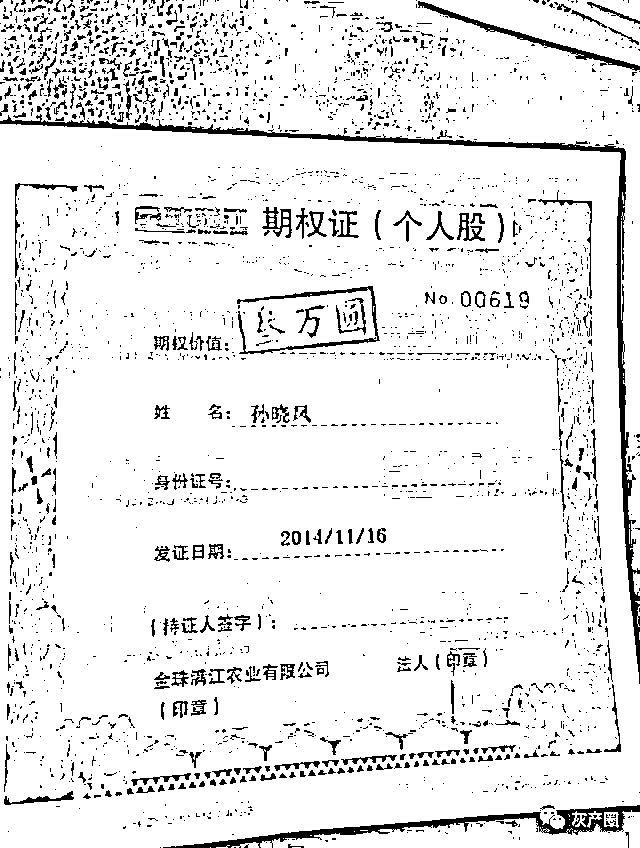 期权证(个人股)
No 00619
期权价值: 叁万圆
姓 名: 孙晓凤
身份证号:
发证日期: 2014/11/16
(持证人签字):
金珠满江农业有限公司 法人(印章)
(印章)
灰产圈